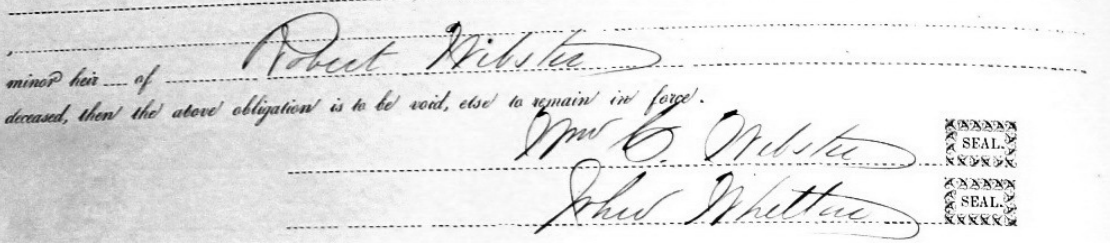 minor heir of Robert Webster
deceased, then the above obligation is to be void, else to remain in force.
Wm C. Webster SEAL.
John SEAL.